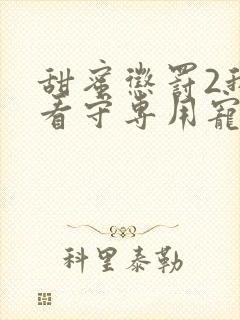 甜蜜懲罰2我
看守專用寵
科里泰勒